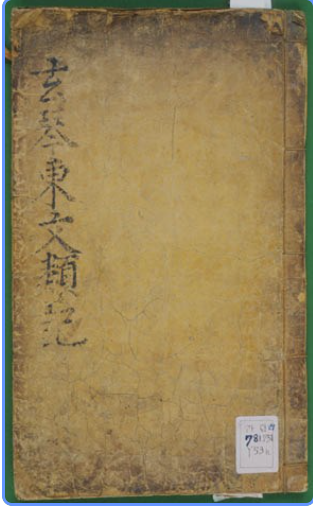 玄琴東文類記